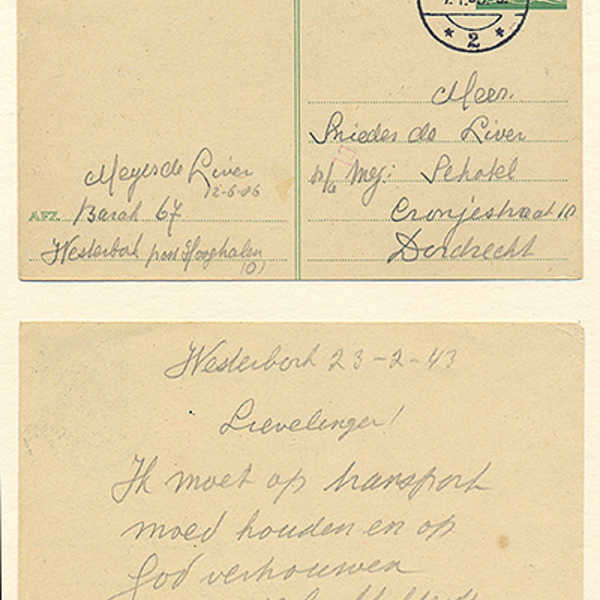 2
Meyer de Liver
12-6-86
AFZ. Barak 67
Westerbork post Hooghalen
(O)
Mevr.
Snieder de Liver
p/a Mej: Schotel
Cronjéstraat 10
Dordrecht
Westerbork 23-2-43
Lievelingen!
Ik moet op transport
moed houden en op
God vertrouwen